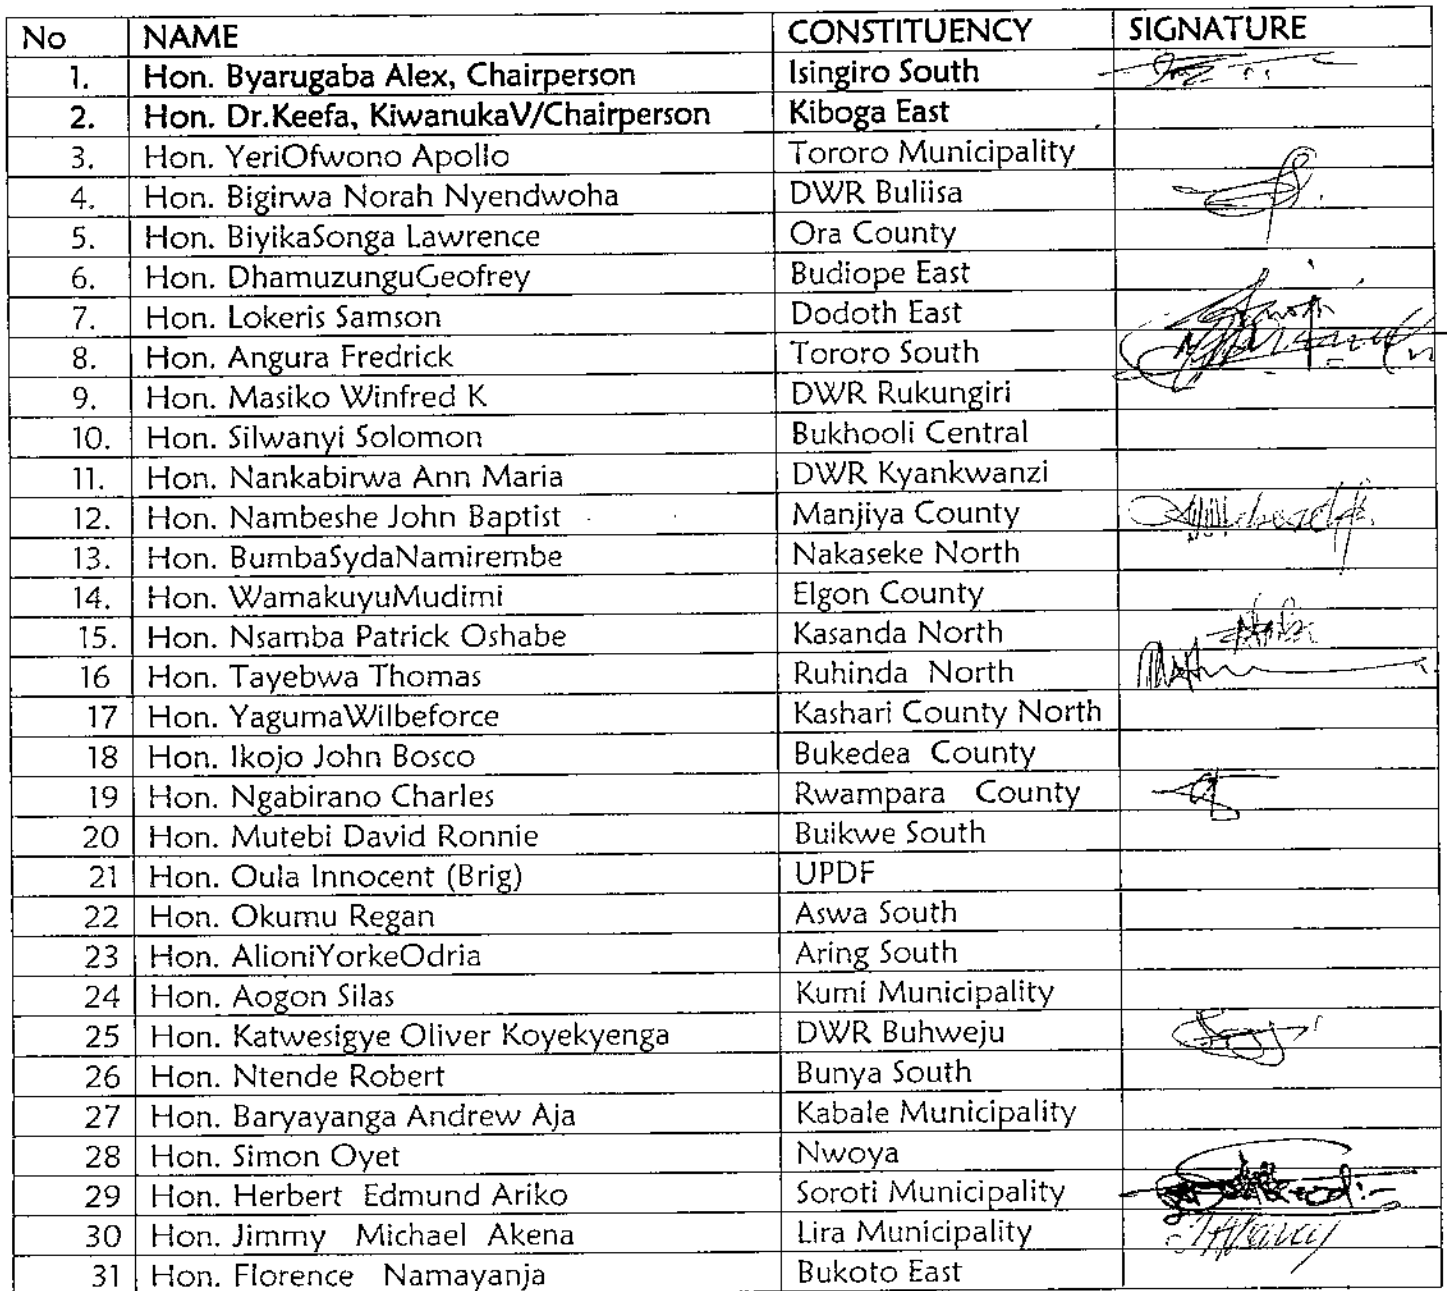 No NAME CONSTITUENCY SIGNATURE
1. Hon. Byarugaba Alex, Chairperson Isingiro South
2. Hon. Dr.Keefa, KiwanukaV/Chairperson Kiboga East
3. Hon. YeriOfwono Apollo Tororo Municipality
4. Hon. Bigirwa Norah Nyendwoha DWR Buliisa
5. Hon. BiyikaSonga Lawrence Ora County
6. Hon. DhamuzunguGeofrey Budiope East
7. Hon. Lokeris Samson Dodoth East
8. Hon. Angura Fredrick Tororo South
9. Hon. Masiko Winfred K DWR Rukungiri
10. Hon. Silwanyi Solomon Bukhooli Central
11. Hon. Nankabirwa Ann Maria DWR Kyankwanzi
12. Hon. Nambeshe John Baptist Manjiya County
13. Hon. BumbaSydaNamirembe Nakaseke North
14. Hon. WamakuyuMudimi Elgon County
15. Hon. Nsamba Patrick Oshabe Kasanda North
16 Hon. Tayebwa Thomas Ruhinda North
17 Hon. YagumaWilbeforce Kashari County North
18 Hon. Ikojo John Bosco Bukedea County
19 Hon. Ngabirano Charles Rwampara County
20 Hon. Mutebi David Ronnie Buikwe South
21 Hon. Oula Innocent (Brig) UPDF
22 Hon. Okumu Regan Aswa South
23 Hon. AlioniYorkeOdria Aring South
24 Hon. Aogon Silas Kumi Municipality
25 Hon. Katwesigye Oliver Koyekyenga DWR Buhweju
26 Hon. Ntende Robert Bunya South
27 Hon. Baryayanga Andrew Aja Kabale Municipality
28 Hon. Simon Oyet Nwoya
29 Hon. Herbert Edmund Ariko Soroti Municipality
30 Hon. Jimmy Michael Akena Lira Municipality
31 Hon. Florence Namayanja Bukoto East